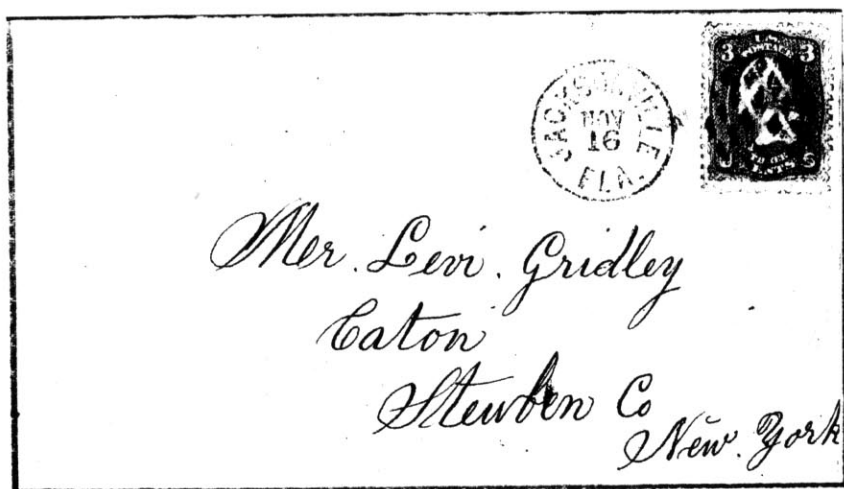 JACKSONVILLE
NOV
16
FLA.
3 3
U S
Mer. Levi. Gridley
Caton
Steuben Co
New. York